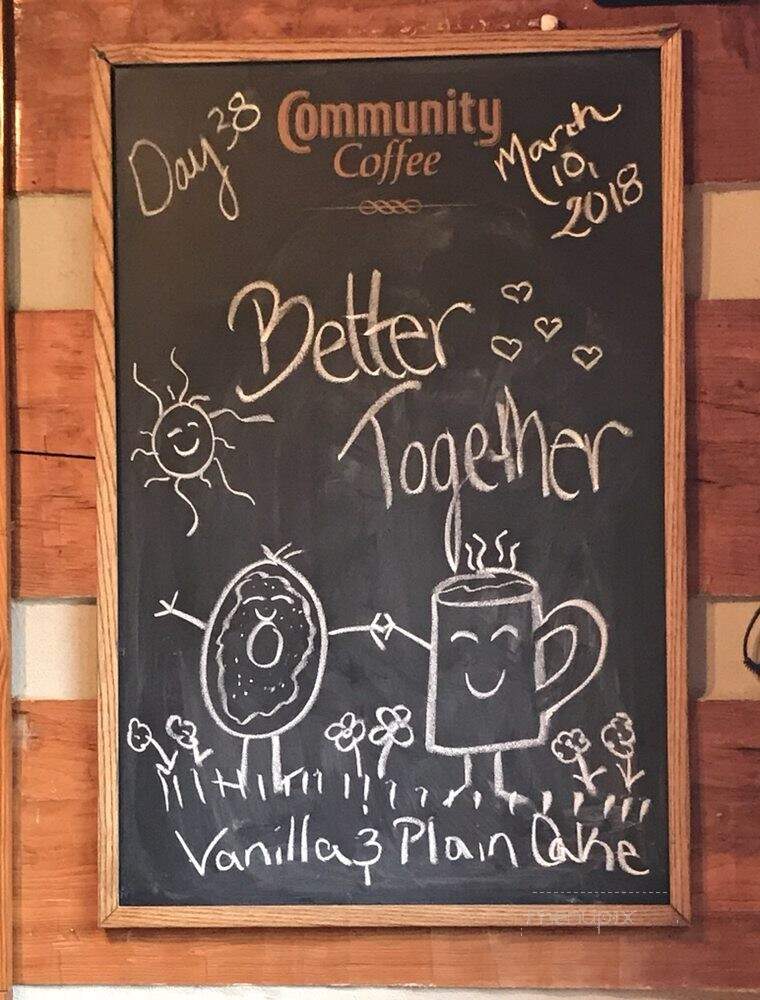 Day 38
Community
Coffee
March
10,
2018
Better
Together
Vanilla & Plain Cake
menupix